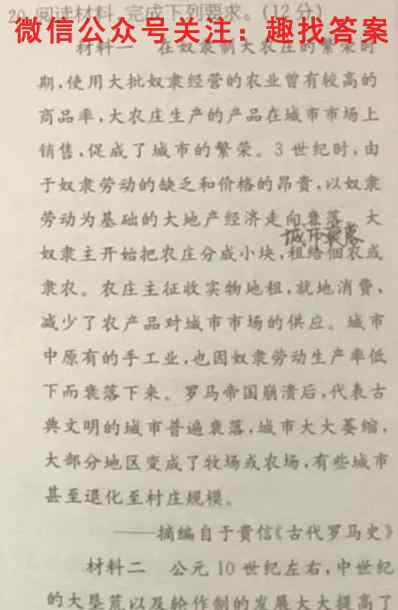 20. 阅读材料,完成下列要求。(12分)
微信公众号关注:趣找答案
材料一 在奴隶制大农庄的繁荣时
期,使用大批奴隶经营的农业曾有较高的
商品率,大农庄生产的产品在城市市场上
销售,促成了城市的繁荣。3世纪时,由
于奴隶劳动的缺乏和价格的昂贵,以奴隶
劳动为基础的大地产经济走向衰落。大
城市衰落
奴隶主开始把农庄分成小块,租给佃农或
隶农。农庄主征收实物地租,就地消费,
减少了农产品对城市市场的供应。城市
中原有的手工业,也因奴隶劳动生产率低
下而衰落下来。罗马帝国崩溃后,代表古
典文明的城市普遍衰落,城市大大萎缩,
大部分地区变成了牧场或农场,有些城市
甚至退化至村庄规模。
——摘编自于贵信《古代罗马史》
材料二 公元10世纪左右,中世纪
的大垦荒以及轮作制的发展大大提高了